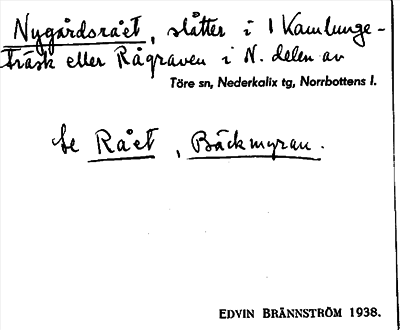 Nygårdsrået, slåtter i 1 Kamlunge-
träsk eller Rågraven i N. delen av
Töre sn, Nederkalix tg, Norrbottens l.
Se Rået, Bäckmyran.
EDVIN BRÄNNSTRÖM 1938.